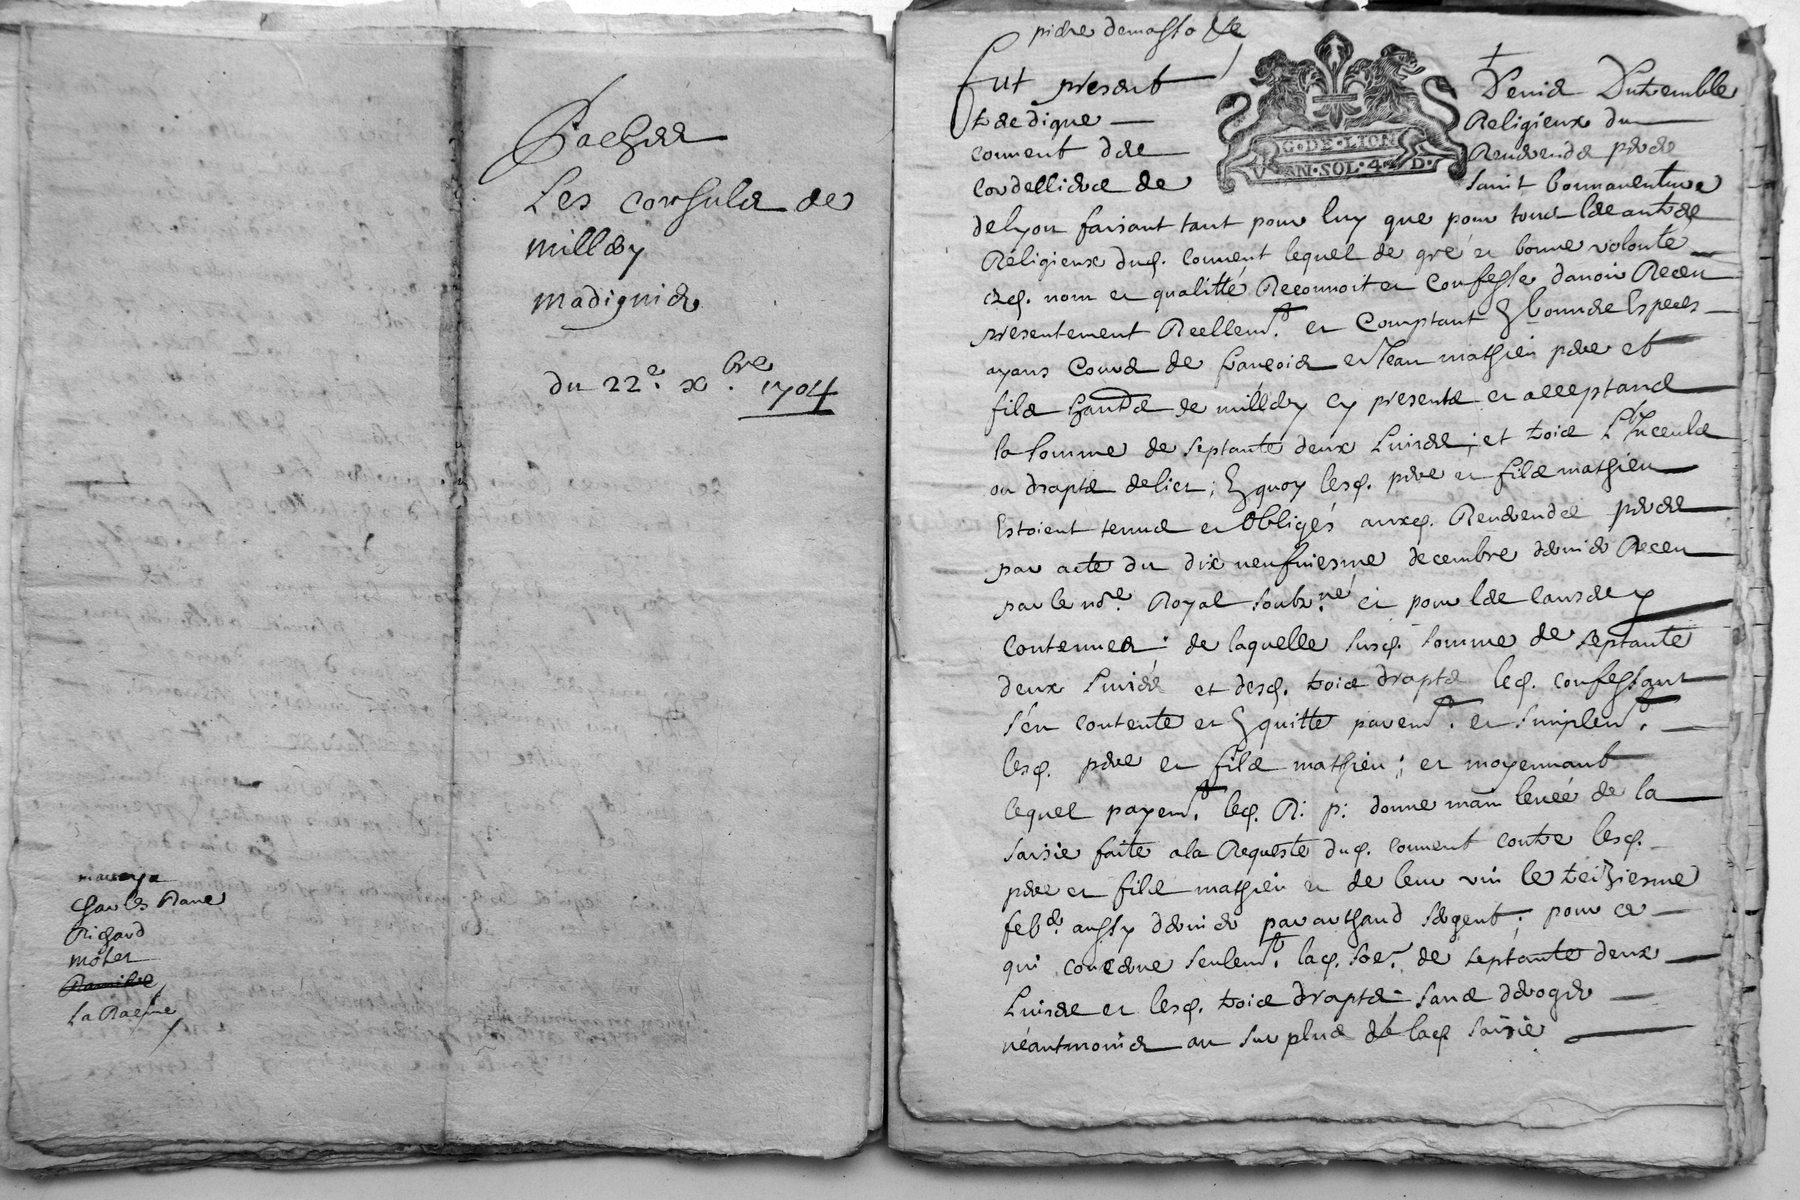 Pachees
Les consuls de
millery
madignier
du 22e. xbre. 1704
Charles Rane
Richard
moter
La Racine
pierre demasso
Fut présent Denis Dutremble
Religieux du
couvent des Reverends peres
Cordelliers de saint bonnaventure
de lyon faisant tant pour luy que pour tous les autres
Religieux dud. couvent lequel de gré et bonne volonté
esd. nom et qualitté Reconnoit et confesse d'avoir Receu
présentement Reellemt. et Comptant En bonnes Especes
ayans Cours de françois et Jean mathieu pere et
fils de millery cy présents et acceptans
la somme de septante deux Livres; et trois Linceuls
ou draps de lict; En quoy lesd. pere et fils mathieu
Estoient tenus et Obligés auxd. Reverends peres
par acte du dix neufviesme decembre dernier Receu
par le nore. Royal soubzné. et pour les causes y
Contenues: de laquelle susd. somme de septante
deux Livres et desd. trois draps led. confessant
s'en contente et En quitte puremt. et simplemt.
lesd. pere et fils mathieu; et moyennant
lequel payemt. led. R: p: donne main levée de la
saisie faite a la Requeste dud. couvent contre lesd.
pere et fils mathieu et de leur vin le treiziesme
febr. aussy dernier par arthaud sergent; pour ce
qui concerne seulemt. lad. soe. de septante deux
Livres et lesd. trois draps sans deroger
néantmoins au surplus de lad saisie
G·DE·LION